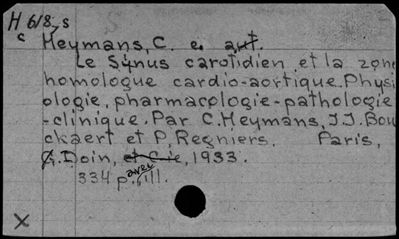 H 618-s
c
Heymans, C. e. aut.
Le Sÿnus carotidien et la zone
homologue cardio-aortique. Physi
ologie, pharmacologie-pathologie
-clinique. Par C. Heymans, J.J. Bou
ckaert et P. Regniers. Paris,
G. Doin, et Cie, 1933.
334 p. avec ill.
X